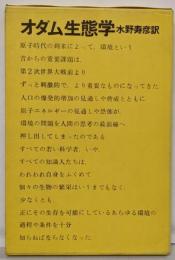 オダム生態学水野寿彦訳
原子時代の到来によって、環境という
古からの重要課題は、
第2次世界大戦前より
ずっと刺激的で、より重要なものになってきた
人口の爆発的増加の見通しや脅威とともに
原子エネルギーの見通しや恐怖が、
環境の問題を人間の思考の最前線へ
押し出してしまったのである
すべての若い科学者、いや、
すべての知識人たちは、
われわれ自身をふくめて
個々の生物の繁栄はいうまでもなく、
少なくとも、
正にその生存を可能にしているあらゆる環境の
過程や条件を十分
知らねばならなくなった